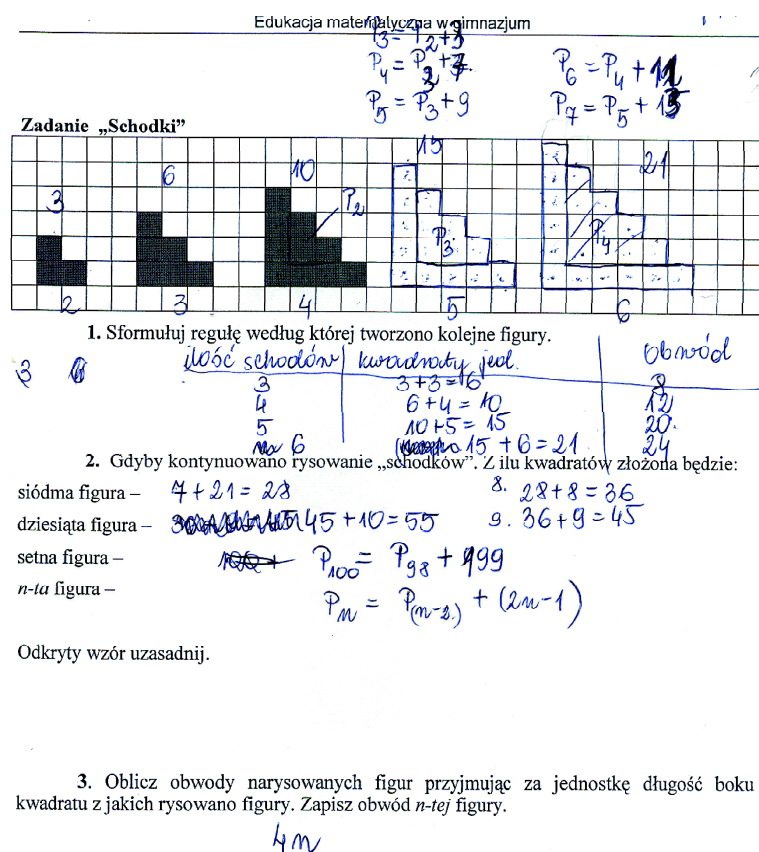 Edukacja matematyczna w gimnazjum
P3 = P2+3
P4 = P2+7
P6 = P4 + 11
P5 = P3+9
P7 = P5 + 13
Zadanie „Schodki”
3 6 10 15 21
P2 P3 P4
2 3 4 5 6
1. Sformułuj regułę według której tworzono kolejne figury.
ilość schodów kwadraty jed. Obwód
3 6
3 3+3=6 8
4 6+4=10 12
5 10+5=15 20.
6 15+6=21 24
2. Gdyby kontynuowano rysowanie „schodków”. Z ilu kwadratów złożona będzie:
siódma figura – 7+21=28 8. 28+8=36
dziesiąta figura – 45+10=55 9. 36+9=45
setna figura – P100 = P98 + 199
n-ta figura – Pn = P(n-2) + (2n-1)
Odkryty wzór uzasadnij.
3. Oblicz obwody narysowanych figur przyjmując za jednostkę długość boku
kwadratu z jakich rysowano figury. Zapisz obwód n-tej figury.
4n